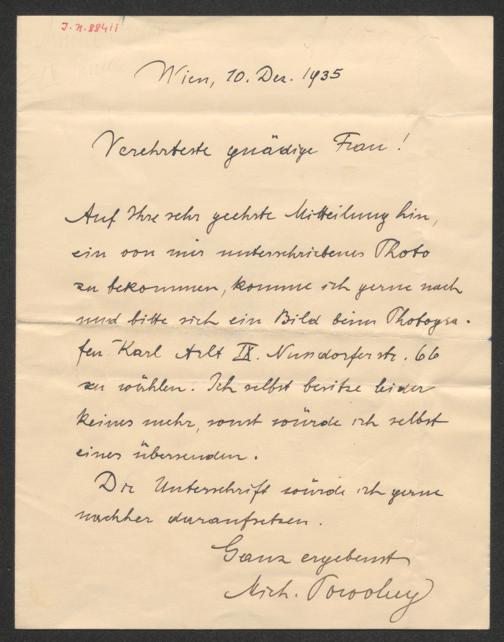 J.N. 88411
Wien, 10. Dez. 1935
Verehrteste gnädige Frau!
Auf Ihre sehr geehrte Mitteilung hin,
ein von mir unterschriebenes Photo
zu bekommen, komme ich gerne nach
und bitte sich ein Bild beim Photogra-
fen Karl Arlt IX. Nussdorferstr. 66
zu wählen. Ich selbst besitze leider
keines mehr, sonst würde ich selbst
eines übersenden.
Die Unterschrift würde ich gerne
nachher daraufsetzen.
Ganz ergebenst
Mich. Powolny